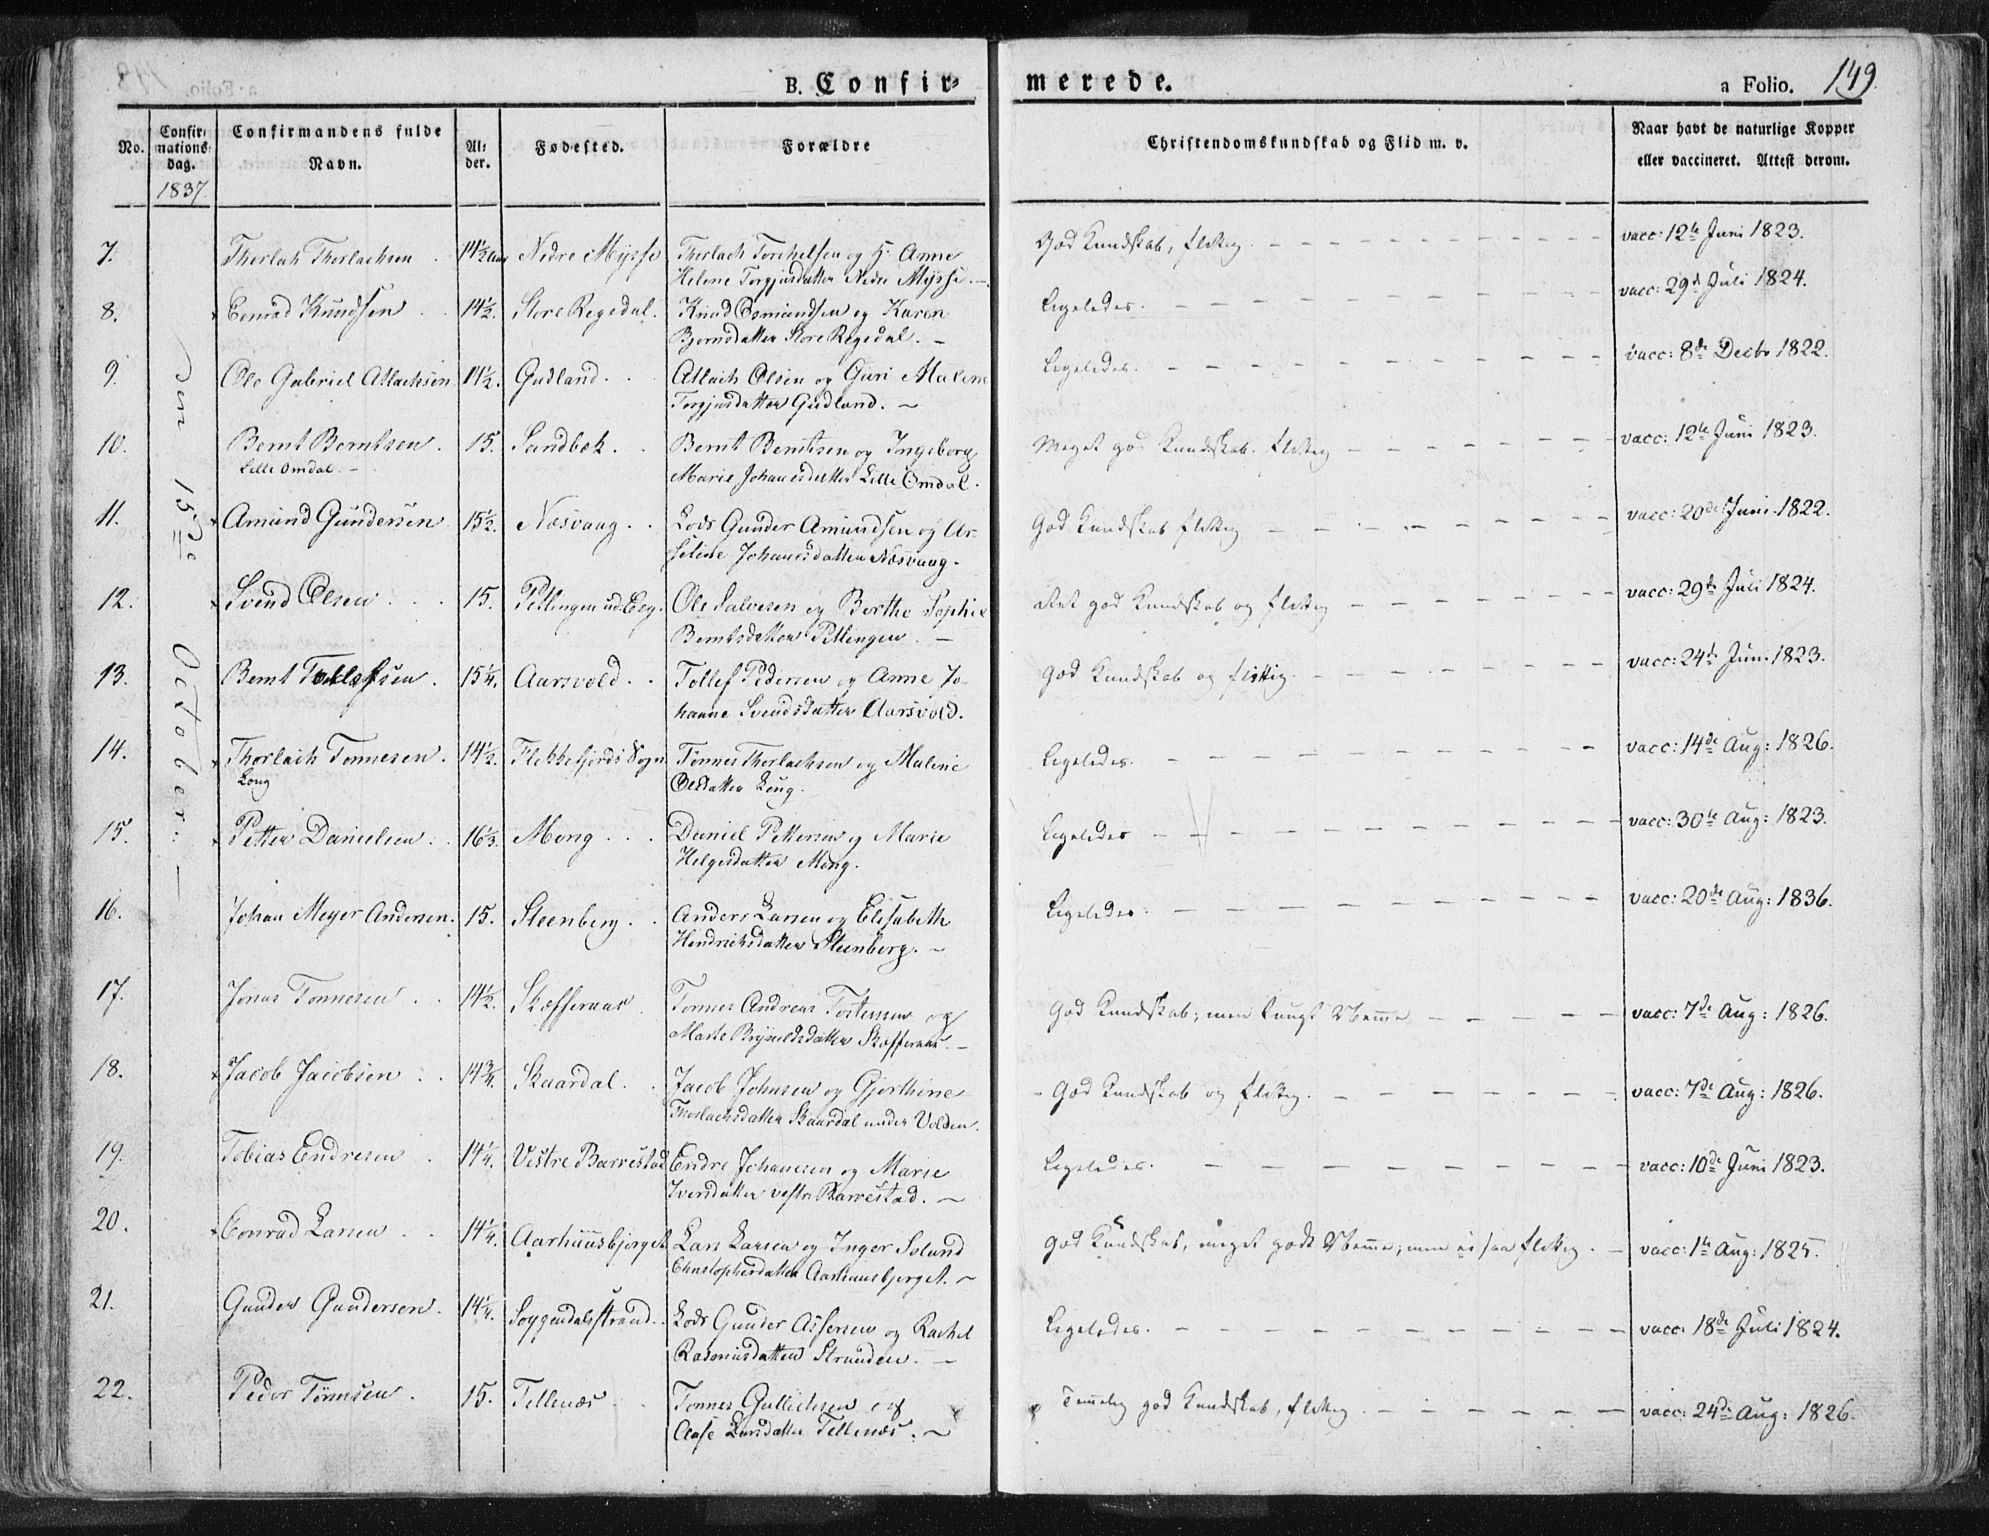 B. Confir= merede. a Folio. 149.
No. Confirmations dag. 1837. Confirmandens fulde Navn. Alder. Fødested. Forældre Christendomskundskab og Flid m. v. Naar havt de naturlige Kopper eller vaccineret. Attest derom.
Den 15de October. —
7. Thorlak Thorlachsen . 14½ Aar Nedre Mysse Thorlach Torchelsen og H. Anne God Kundskab, flittig. vacc: 12te Juni 1823.
Helene Torgjersdatter Nedre Mysse. —
8. Conrad Knudsen . . 14½. Store Regedal. Knud Osmundsen og Karen Ligeledes. vacc: 29de Juli 1824.
Bjørnsdatter Store Regedal. —
9. Ole Gabriel Atlachsen 14½. Gudland. . Atlach Olsen og Guri Malene Ligeledes. vacc: 8de Decbr 1822.
Torgjersdatter Gudland. —
10. Bernt Berntsen. 15. Sandbek. . Bernt Berntsen og Ingeborg Meget god Kundskab. flittig vacc: 12te Juni 1823.
Lille Omdal. — Marie Johanesdatter Lille Omdal.
11. Amund Gundersen 15½. Næsvaag. . Lods Gunder Amundsen og Ar- God Kundskab flittig vacc: 20de Juni 1822.
seline Johanesdatter Næsvaag.
12. Svend Olsen . . . 15. Pettingen ud. Eeg. Ole Salvesen og Berthe Sophie god Kundskab og flittig vacc: 29de Juli 1824.
Berntsdatter Pettingen. —
13. Bernt Tollefsen. 15¼. Aarsvold. . Tollef Pedersen og Anne Jo- God Kundskab og flittig. vacc: 24de Juni 1823.
hanne Svendsdatter Aarsvold.
14. Thorlach Tonnesen. 14½. Flekkefjords Sogn. Tonnes Thorlachsen og Malene Ligeledes. vacc: 14de Aug: 1826.
Long Olsdatter Long.
15. Petter Danielsen . . 16⅓. Mong . . . Daniel Pettersen og Marie Ligeledes vacc: 30te Aug: 1823.
Helgesdatter Mong.
16. Johan Meyer Andersen. 15. Steenberg. . Anders Larsen og Elisabeth Ligeledes. vacc: 20de Aug: 1836.
Hendrichsdatter Steenberg. —
17. Jonas Tonnesen . . 14½. Skefferaas Tonnes Andreas Tostensen og God Kundskab; men tungt Nemme vacc: 7de Aug: 1826.
Marte Skefferaas. —
18. Jacob Jacobsen . . 14¾. Skaardal. . Jacob Johnsen og Gjorthine God Kundskab og flittig. vacc: 7de Aug: 1826.
Thorlachsdatter Skaardal under Volden.
19. Tobias Endresen . 14¼. Vestre Barrestad Endre Johanesen og Marie Ligeledes. vacc: 10de Juni 1823.
Iversdatter vestre Barrestad. —
20. Conrad Larsen . . 14¼. Aarhuusbjerget Lars Larsen og Inger God Kundskab, meget godt Nemme; men ei saa flittig. vacc: 1te Aug: 1825.
Christophersdatter Aarhuusbjerget. —
21. Gunder Gundersen. 14¼. Soggendalsstrand. Lods Gunder Assersen og Rachel Ligeledes. vacc: 18de Juli 1824.
Rasmusdatter Stranden. —
22. Peder Tonnesen. 15. Tellenæs Tonnes Gullichsen og Temmelig god Kundskab, flittig. vacc: 24de Aug: 1826.
Aase Larsdatter Tellenæs. —